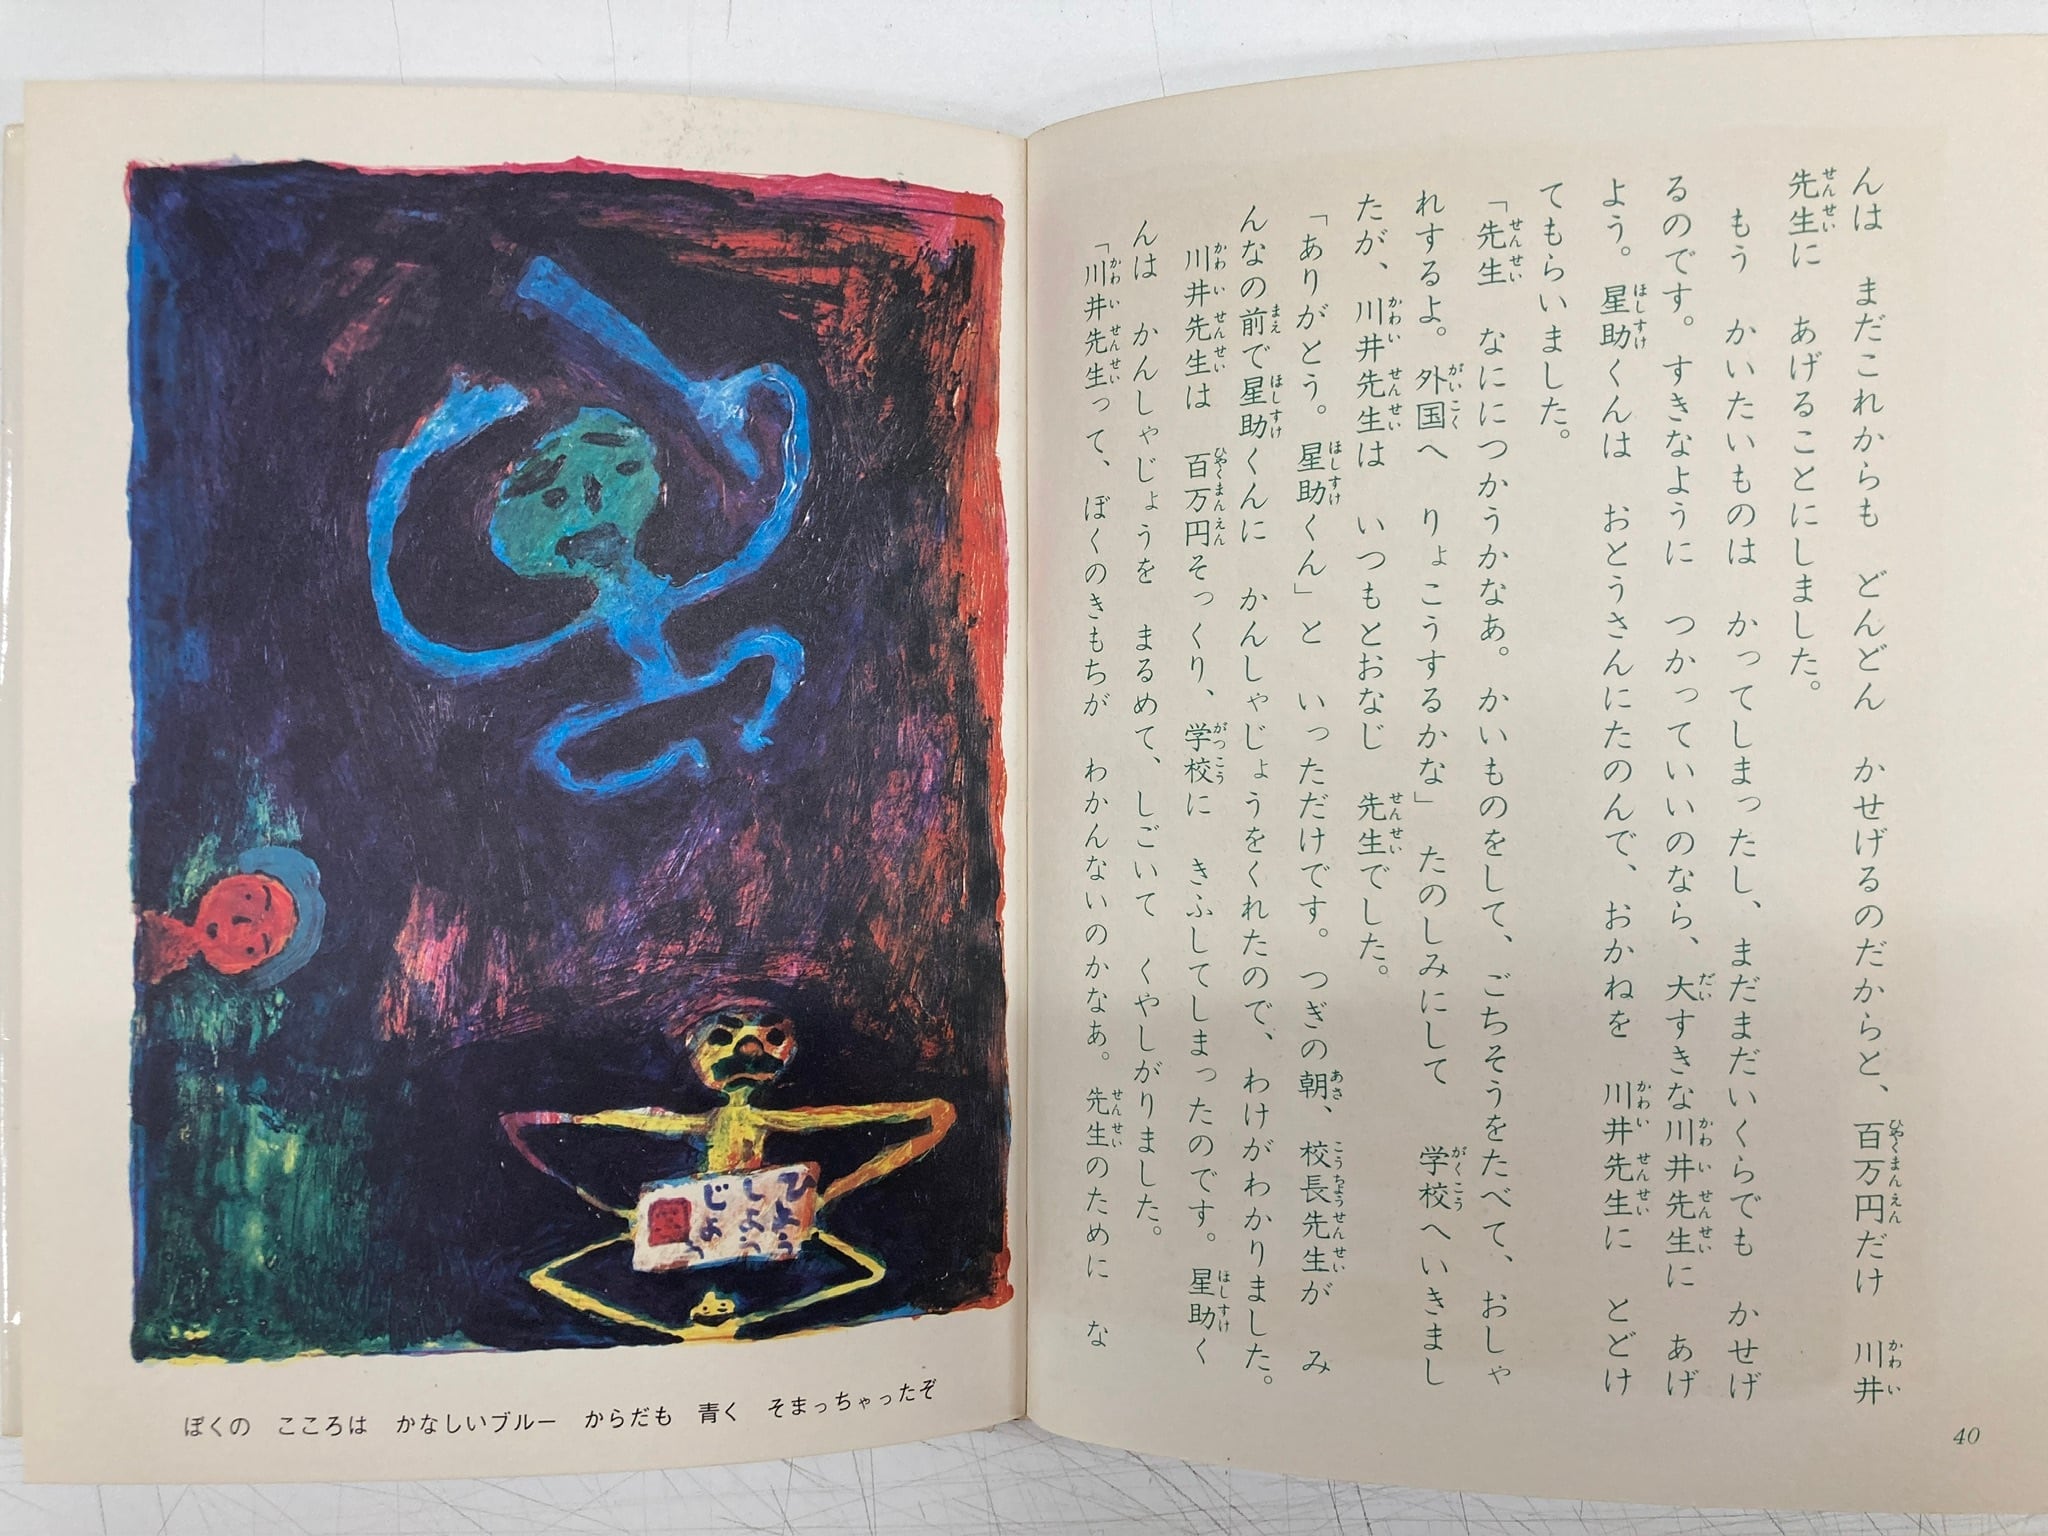 んは　まだこれからも　どんどん　かせげるのだからと、百万円だけ　川井
先生に　あげることにしました。
もう　かいたいものは　かってしまったし、まだまだいくらでも　かせげ
るのです。すきなように　つかっていいのなら、大すきな川井先生に　あげ
よう。星助くんは　おとうさんにたのんで、おかねを　川井先生に　とどけ
てもらいました。
「先生　なにに​つかうかなあ。かいものをして、ごちそうをたべて、おしゃ
れするよ。外国へ　りょこうするかな」たのしみにして　学校へいきまし
たが、川井先生は　いつもとおなじ　先生でした。
「ありがとう。星助くん」と　いっただけです。つぎの朝、校長先生が　み
んなの前で星助くんに　かんしゃじょうをくれたので、わけがわかりました。
川井先生は　百万円そっくり、学校に　きふしてしまったのです。星助く
んは　かんしゃじょうを　まるめて、しごいて　くやしがりました。
「川井先生って、ぼくのきもちが　わかんないのかなあ。先生のために　な
40
ひょう
しょう
じょう
ぼくの　こころは　かなしいブルー　からだも　青く　そまっちゃったぞ